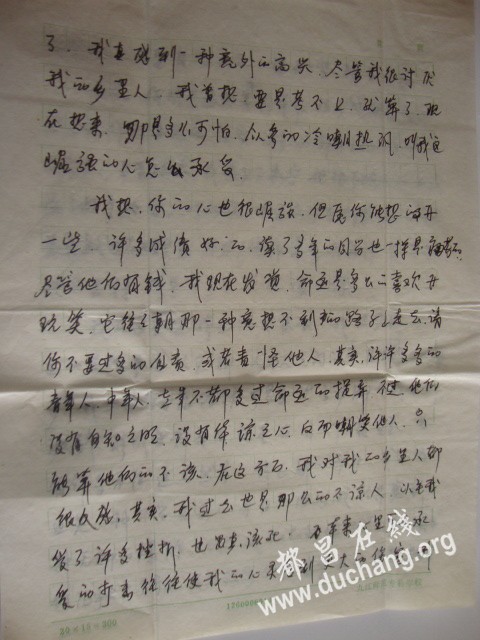 了。我真感到一种意外的高兴,尽管我很讨厌
我的乡里人 我曾想,要是考不上,就算了,现
在想来,那是多么可怕,众多的冷嘲热讽,叫我这
崛强的人怎么承受。
我想,你的心也很崛强,但愿你能想得开
一些 许多成绩好的,读了多年的同学也一样是
尽管他们有钱,我现在发现,命运是多么的喜欢开
玩笑,它往往朝那一种意想不到的路子上走去,请
你不要过多的自责,或者责怪他人 其实,许许多多的
青年人,中年人,老年不都受过命运的捉弄 不过他们
没有自知之明,没有体谅之心,反而嘲笑他人,只
能算他们的不该,在这方面,我对我的乡里人都
很反感,其实,我过去也是那么的不谅人,以至我
受了许多挫折,也
的打击往往使我的心灵
都昌在线
www.duchang.org